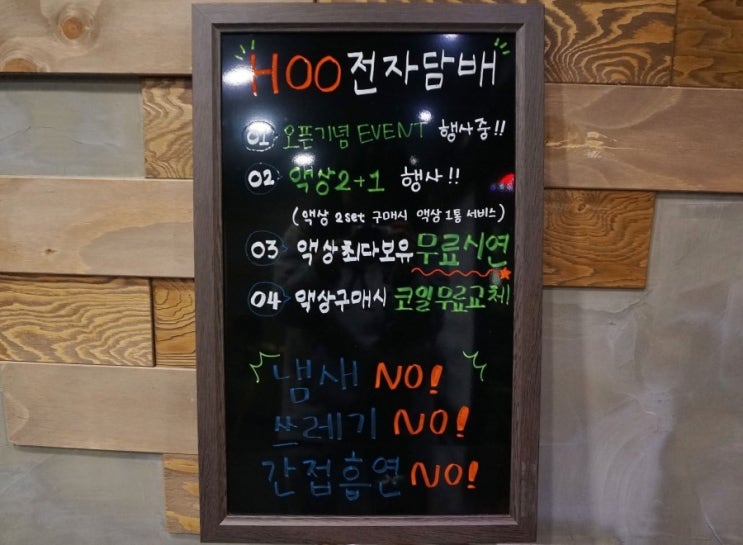 HOO 전자담배
01 오픈기념 EVENT 행사중!!
02 액상2+1 행사!!
(액상 2set 구매시 액상 1통 서비스)
03 액상최다보유 무료시연
04 액상구매시 코일무료교체!
냄새 NO!
쓰레기 NO!
간접흡연 NO!